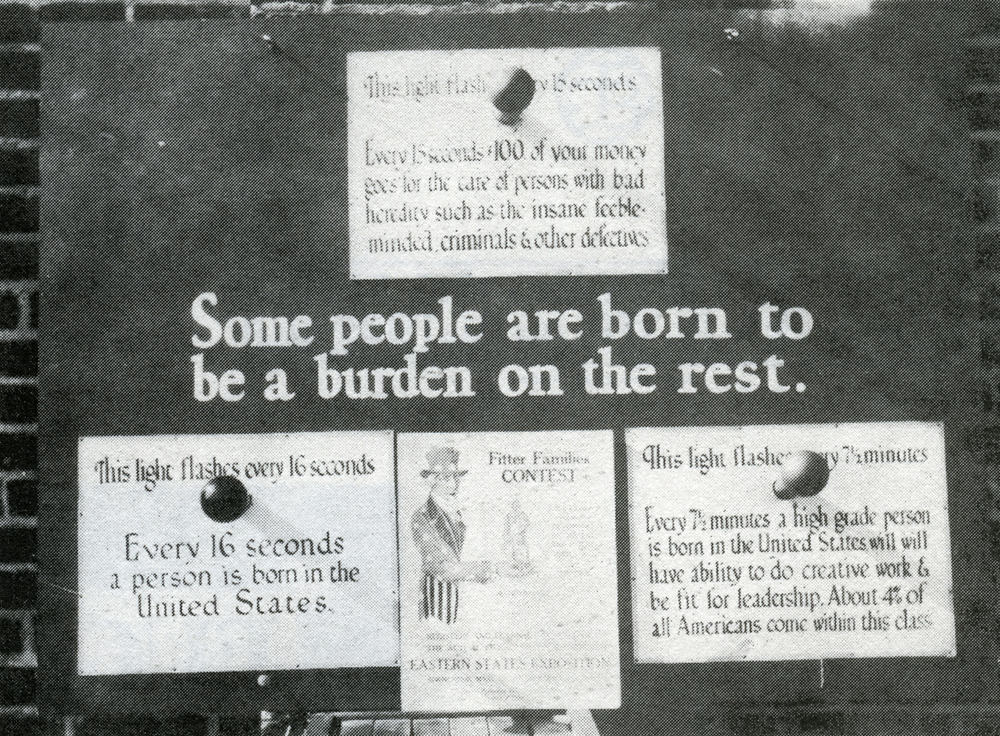 This light flash y 15 seconds
Every 15 seconds $100 of your money
goes for the care of persons with bad
heredity such as the insane feeble-
minded, criminals & other defectives
Some people are born to
be a burden on the rest.
This light flashes every 16 seconds
Every 16 seconds
a person is born in the
United States.
Fitter Families
CONTEST
EASTERN STATES EXPOSITION
This light flashe y 7½ minutes
Every 7½ minutes a high grade person
is born in the United States, will will
have ability to do creative work &
be fit for leadership. About 4% of
all Americans come within this class